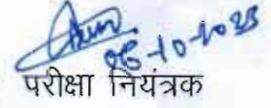 06-10-2023
परीक्षा नियंत्रक